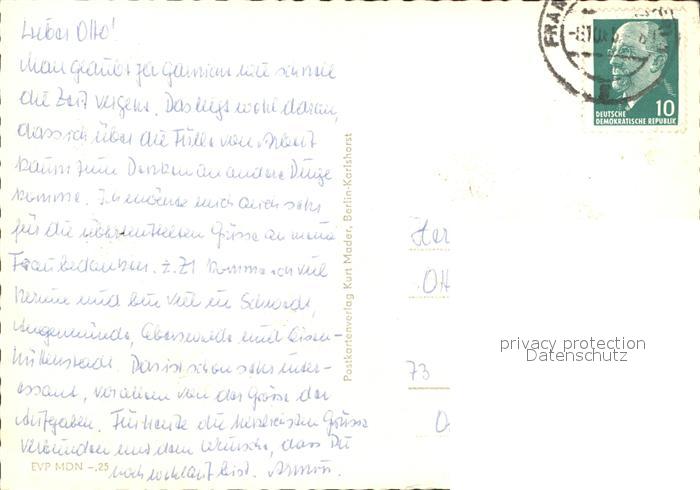 Lieber Otto!
Man glaubt ja gar nicht wie schnell
die Zeit vergeht. Das liegt wohl daran,
dass ich über die Fülle von Arbeit
kaum zum Denken an andere Dinge
komme. Ich möchte mich auch sehr
für die übermittelten Grüsse an meine
Frau bedanken. Z. Zt. komme ich viel
herum und bin viel in Schwedt,
Angermünde, Eberswalde und Eisen-
hüttenstadt. Das ist schon sehr inter-
essant, vor allem von der Grösse der
Aufgaben. Für heute die herzlichsten Grüsse
verbunden mit dem Wunsche, dass Du
noch wohlauf bist. Armin.
EVP MDN -,25
Postkartenverlag Kurt Mader, Berlin-Karlshorst
FRAN
DEUTSCHE
DEMOKRATISCHE REPUBLIK
10
Her
Ott
73
privacy protection
Datenschutz